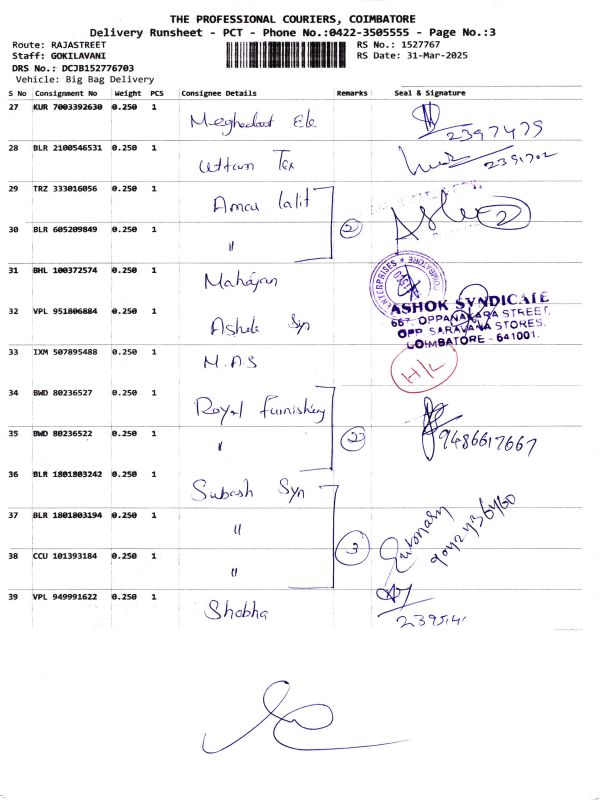 THE PROFESSIONAL COURIERS, COIMBATORE
Delivery Runsheet - PCT - Phone No.:0422-3505555 - Page No.:3
Route: RAJASTREET
Staff: GOKILAVANI
DRS No.: DCJB152776703
Vehicle: Big Bag Delivery
RS No.: 1527767
RS Date: 31-Mar-2025
S No Consignment No Weight PCS Consignee Details Remarks Seal & Signature
27 KUR 7003392630 0.250 1 Meghadoot Ele 2397475
28 BLR 2100546531 1 Uttam Tex 2391702
29 TRZ 333016056 0.250 1 Amar Lalit
30 BLR 605209849 0.250 1 " 2 2
31 BHL 100372574 0.250 1 Mahajan
ENTERPRISES * COIMBATORE
32 VPL 951806884 0.250 1 Ashok Syn
ASHOK SYNDICATE
667, OPPANAKARA STREET,
OPP. SARAVANA STORES,
COIMBATORE - 641001.
33 IXM 507895488 0.250 1 M.A.S H/L
34 BWD 80236527 0.250 1 Royal Furnishing
35 BWD 80236522 0.250 1 " 2 9486617667
36 BLR 1801803242 0.250 1 Subash Syn
37 BLR 1801803194 0.250 1 "
38 CCU 101393184 0.250 1 " 3
39 VPL 949991622 0.250 1 Shobha